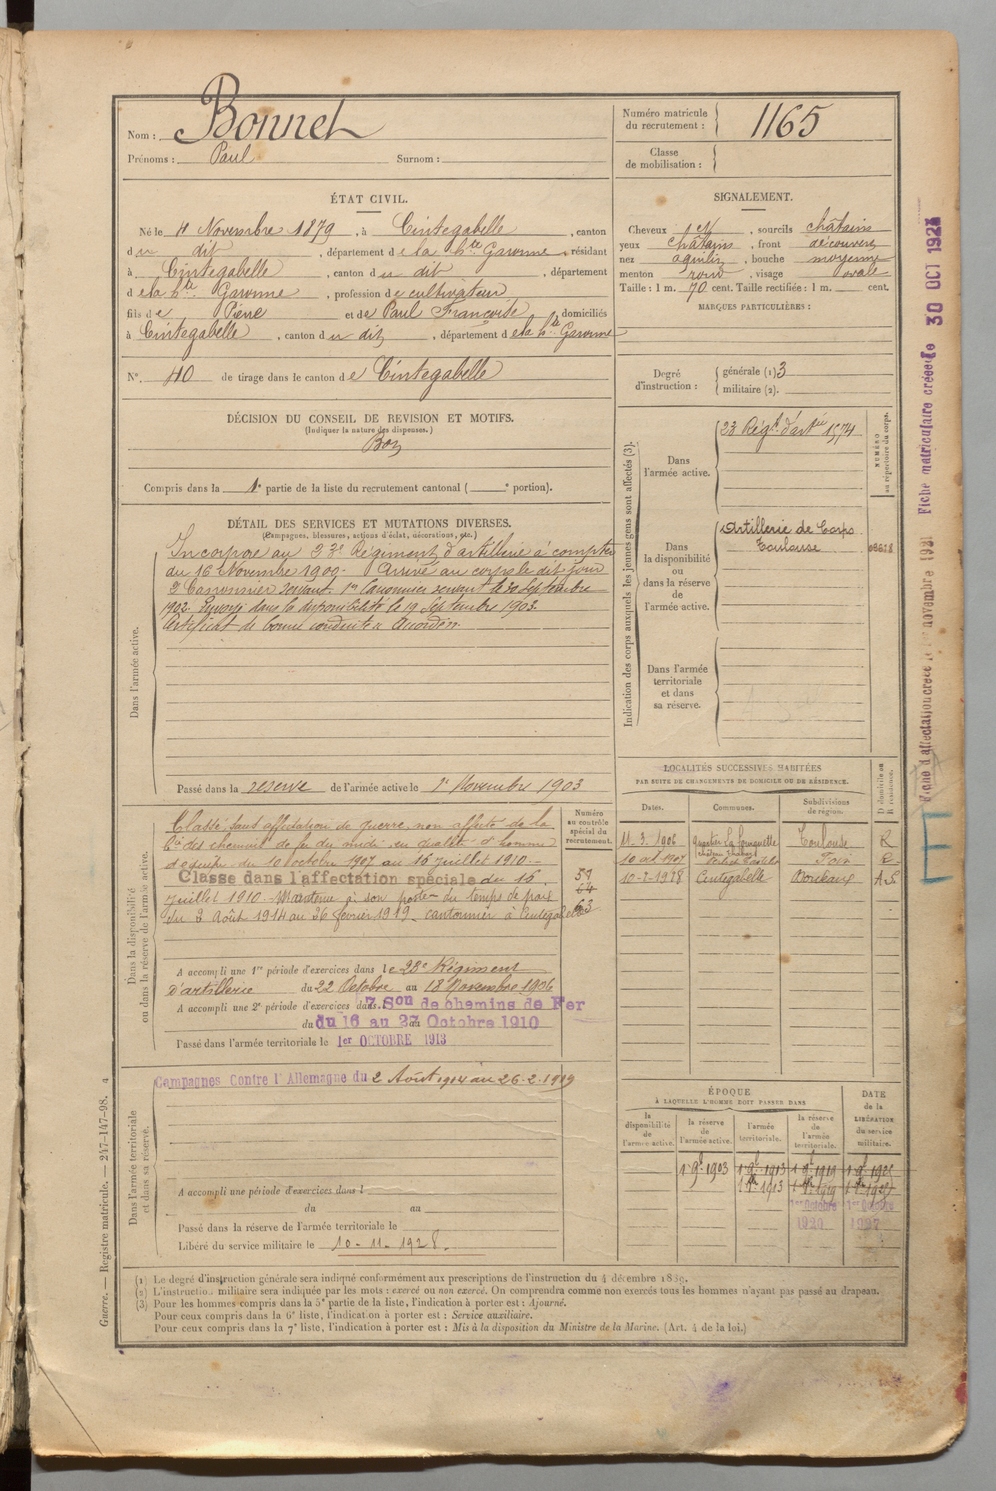 Nom : Bonnet
Prénoms : Paul Surnom :
Numéro matricule du recrutement : 1165
Classe de mobilisation :
ÉTAT CIVIL.
Né le 4 Novembre 1879, à Cintegabelle, canton
du dit, département de la hte Garonne, résidant
à Cintegabelle, canton du dit, département
de la hte Garonne, profession de cultivateur
fils de Pierre et de Paul Françoise, domiciliés
à Cintegabelle, canton du dit, département de la hte Garonne
No. 40 de tirage dans le canton de Cintegabelle
SIGNALEMENT.
Cheveux et sourcils châtains
yeux châtains, front découvert
nez aquilin, bouche moyenne
menton rond, visage ovale
Taille : 1 m. 70 cent. Taille rectifiée : 1 m. cent.
MARQUES PARTICULIÈRES :
Degré d'instruction : générale (1) 3
militaire (2).
DÉCISION DU CONSEIL DE REVISION ET MOTIFS.
(Indiquer la nature des dispenses.)
Bon
Compris dans la 1e partie de la liste du recrutement cantonal ( e portion).
DÉTAIL DES SERVICES ET MUTATIONS DIVERSES.
(Campagnes, blessures, actions d'éclat, décorations, etc.)
Dans l'armée active.
Incorporé au 23e Régiment d'artillerie à compter
du 16 Novembre 1900. Arrivé au corps le dit jour
2e Canonnier servant. 1er Canonnier servant le 20 Septembre
1902. Envoyé dans la disponibilité le 19 Septembre 1903.
Certificat de bonne conduite « Accordé »
Passé dans la réserve de l'armée active le 1er Novembre 1903
Indication des corps auxquels les jeunes gens sont affectés (3).
NUMÉRO au répertoire du corps.
Dans l'armée active.
23 Régt. d'artie 1574
Dans la disponibilité ou dans la réserve de l'armée active.
Artillerie de Corps
Toulouse
Dans l'armée territoriale et dans sa réserve.
Dans la disponibilité ou dans la réserve de l'armée active.
Numéro au contrôle spécial du recrutement.
Classé sans affectation de guerre non affecté de la
Cie des chemins de fer du midi en qualité d'homme
d'équipe du 10 octobre 1907 au 15 juillet 1910.-
Classe dans l'affectation spéciale du 16
juillet 1910 - Maintenu à son poste du temps de paix
du 2 Août 1914 au 26 février 1919. cantonnier à Cintegabelle
51
64
63
A accompli une 1re période d'exercices dans le 23e Régiment
d'artillerie du 22 Octobre au 18 Novembre 1906
A accompli une 2e période d'exercices dans 7 Son de chemins de Fer
du 16 au 27 Octobre 1910
Passé dans l'armée territoriale le 1er OCTOBRE 1913
LOCALITÉS SUCCESSIVES HABITÉES
PAR SUITE DE CHANGEMENTS DE DOMICILE OU DE RÉSIDENCE.
Dates. Communes. Subdivisions de région. D domicile ou R résidence.
11. 3. 1906 Toulouse R
10 oct. 1907 Foix R
10-2-1918 Cintegabelle Bordeaux A.S
Dans l'armée territoriale et dans sa réserve.
Campagnes Contre l'Allemagne du 2 Août 1914 au 26.2.1919
A accompli une période d'exercices dans l
du au
Passé dans la réserve de l'armée territoriale le
Libéré du service militaire le 10-11-1928.
ÉPOQUE
À LAQUELLE L'HOMME DOIT PASSER DANS
la disponibilité de l'armée active.
la réserve de l'armée active.
l'armée territoriale.
la réserve de l'armée territoriale.
DATE de la LIBÉRATION du service militaire.
1er 9b. 1903 1er 9b. 1913 1er 9b. 1919 1er 9b. 1925
1er Octobre 1er Octobre
(1) Le degré d'instruction générale sera indiqué conformément aux prescriptions de l'instruction du 4 décembre 1889.
(2) L'instruction militaire sera indiquée par les mots : exercé ou non exercé. On comprendra comme non exercés tous les hommes n'ayant pas passé au drapeau.
(3) Pour les hommes compris dans la 5e partie de la liste, l'indication à porter est : Ajourné.
Pour ceux compris dans la 6e liste, l'indication à porter est : Service auxiliaire.
Pour ceux compris dans la 7e liste, l'indication à porter est : Mis à la disposition du Ministre de la Marine. (Art. 4 de la loi.)
Guerre. — Registre matricule. — 247-147-98.